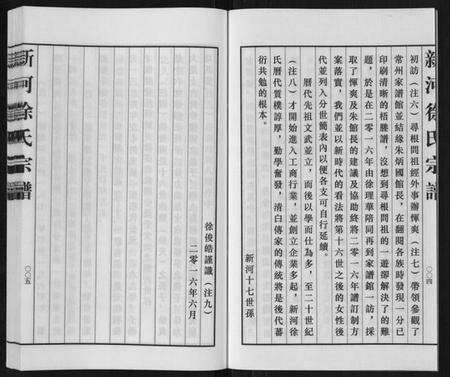 新河徐氏宗譜
〇〇四
初訪（注六）尋根問祖經外事辦惲奭（注七）帶領參觀了
常州家譜館並結緣朱炳國館長，在翻閱各族時發現一分已
印刷清晰的梧塍譜，沒想到尋根問祖的一遊卻解決了的難
題，於是在二零一六年由徐理華陪同再到家譜館一訪，採
取了惲奭及朱館長的建議及協助終將二零一六年譜訂制方
案落實，我們並以新時代的看法將第十六世之後的女性後
代並列入分世簡表內以便各支可自行延續。
歷代先祖文武並立，而後以學而仕為多，至二十世紀
（注八）才開始進入工商行業，並創立企業多起，新河徐
氏曆代質樸諄厚，勤學奮發，清白傳家的傳統將是後代蕃
衍共勉的根本。
新河十七世孫
徐俊皓謹識（注九）
二零一六年六月
新河徐氏宗譜
〇〇五